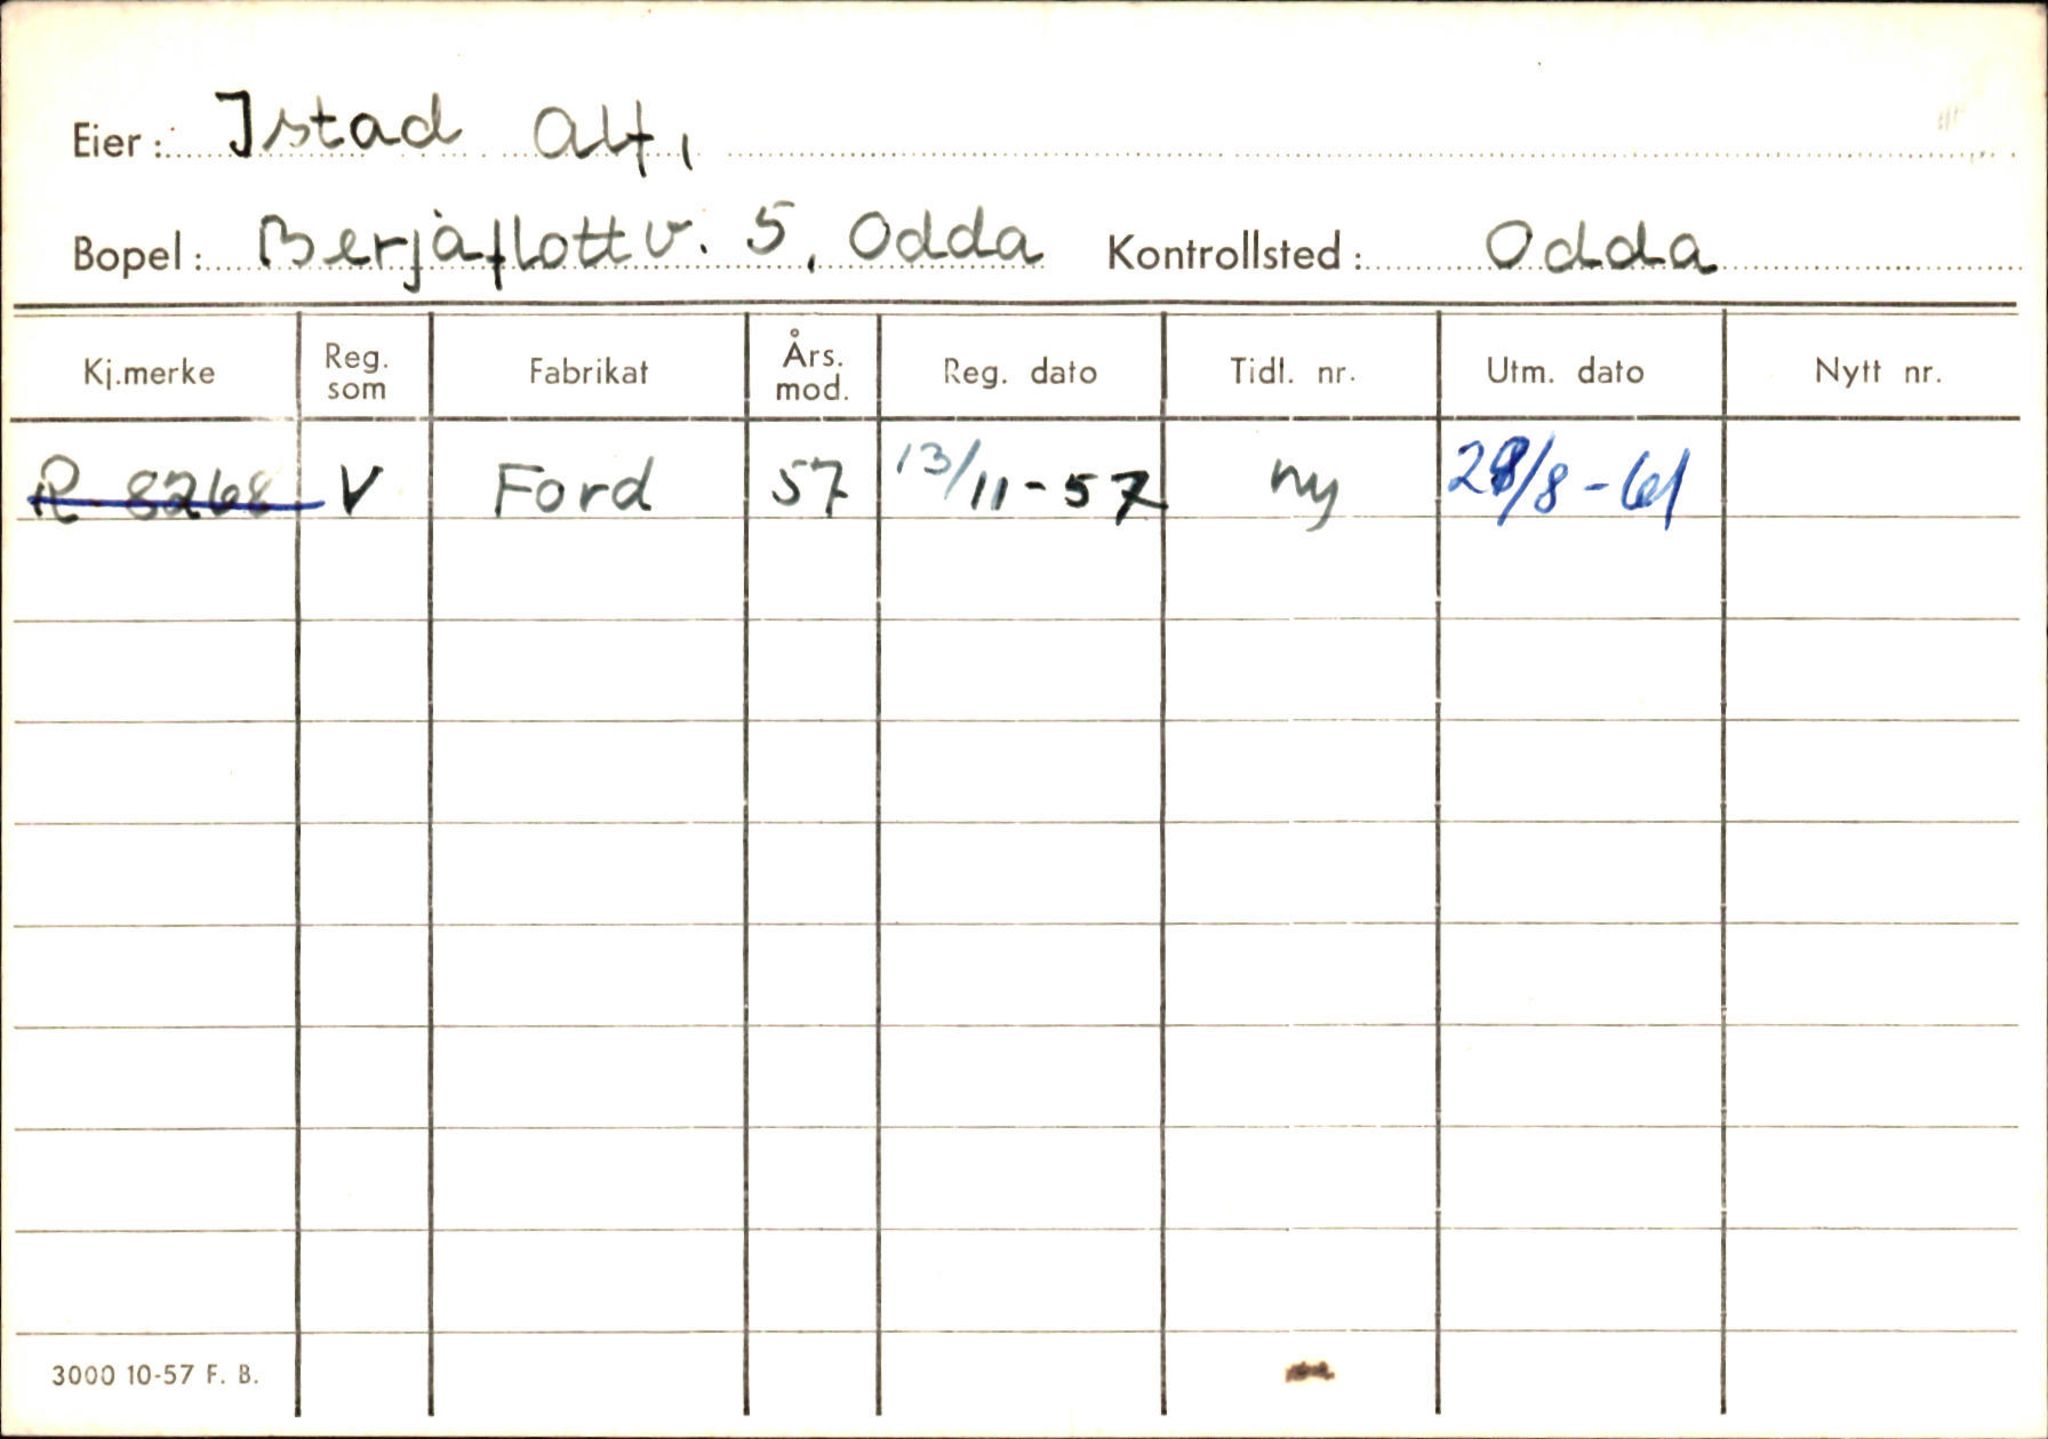 Eier: Istad Alf,
Bopel: Berjaflottv. 5, Odda Kontrollsted: Odda
Kj.merke Reg. som Fabrikat Års. mod. Reg. dato Tidl. nr. Utm. dato Nytt nr.
R 8268 V Ford 57 13/11-57 ny /8-61
3000 10-57 F. B.